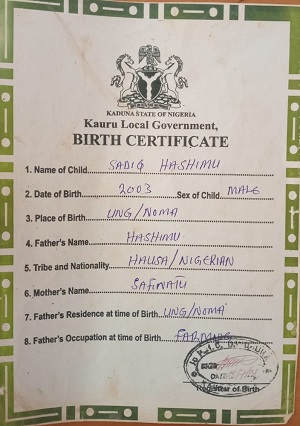 KADUNA STATE OF NIGERIA
Kauru Local Government,
BIRTH CERTIFICATE
1. Name of Child SADIQ HASHIMU
2. Date of Birth 2003 Sex of Child MALE
3. Place of Birth UNG/NOMA
4. Father's Name HASHIMU
5. Tribe and Nationality HAUSA/NIGERIAN
6. Mother's Name SAFINATU
7. Father's Residence at time of Birth UNG/NOMA
8. Father's Occupation at time of Birth FARMING
Registrar of Birth